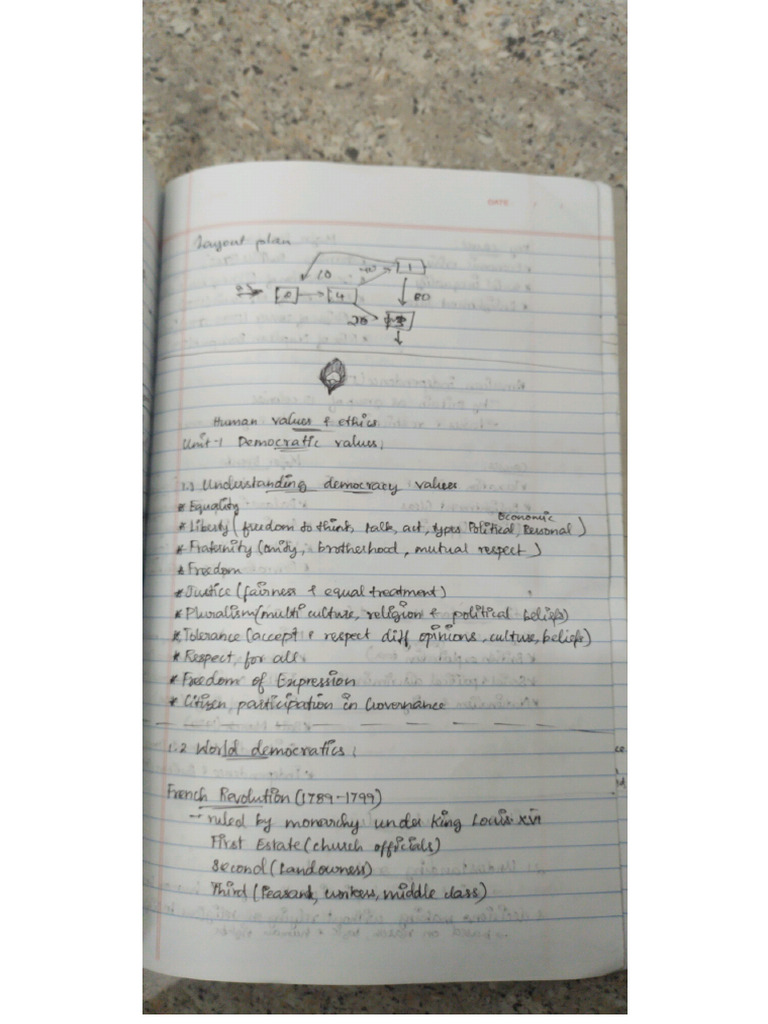 DATE
Layout plan
1
10
0
4
80
20
Human values & ethics
Unit-1 Democratic values:
1.1 Understanding democracy values
* Equality
Economic
* Liberty (freedom to think, talk, act, types Political, Personal)
* Fraternity (unity, brotherhood, mutual respect)
* Freedom
* Justice (fairness & equal treatment)
* Pluralism (multi culture, religion & political beliefs)
* Tolerance (accept & respect diff opinions, culture, beliefs)
* Respect for all
* Freedom of Expression
* Citizen participation in Governance
1.2 World democratics:
French Revolution (1789-1799)
→ ruled by monarchy under King Louis XVI
First Estate (church officials)
Second (Landowners)
Third (Peasant, workers, middle class)